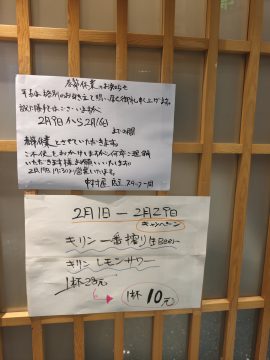 春節休業のお知らせ
平素は格別のお引き立てを賜り厚く御礼申し上げます。
誠に勝手ではございますが
2月9日から2月16日
までの間
春節休業とさせていただきます。
ご不便をおかけいたしますが何卒ご理解
いただきます様お願いいたします。
2月17日 17:30より営業いたします。
スタッフ一同
2月1日 — 2月29日
キャンペーン
キリン 一番搾り生Beer
キリン レモンサワー
1杯 28元
1杯 10元